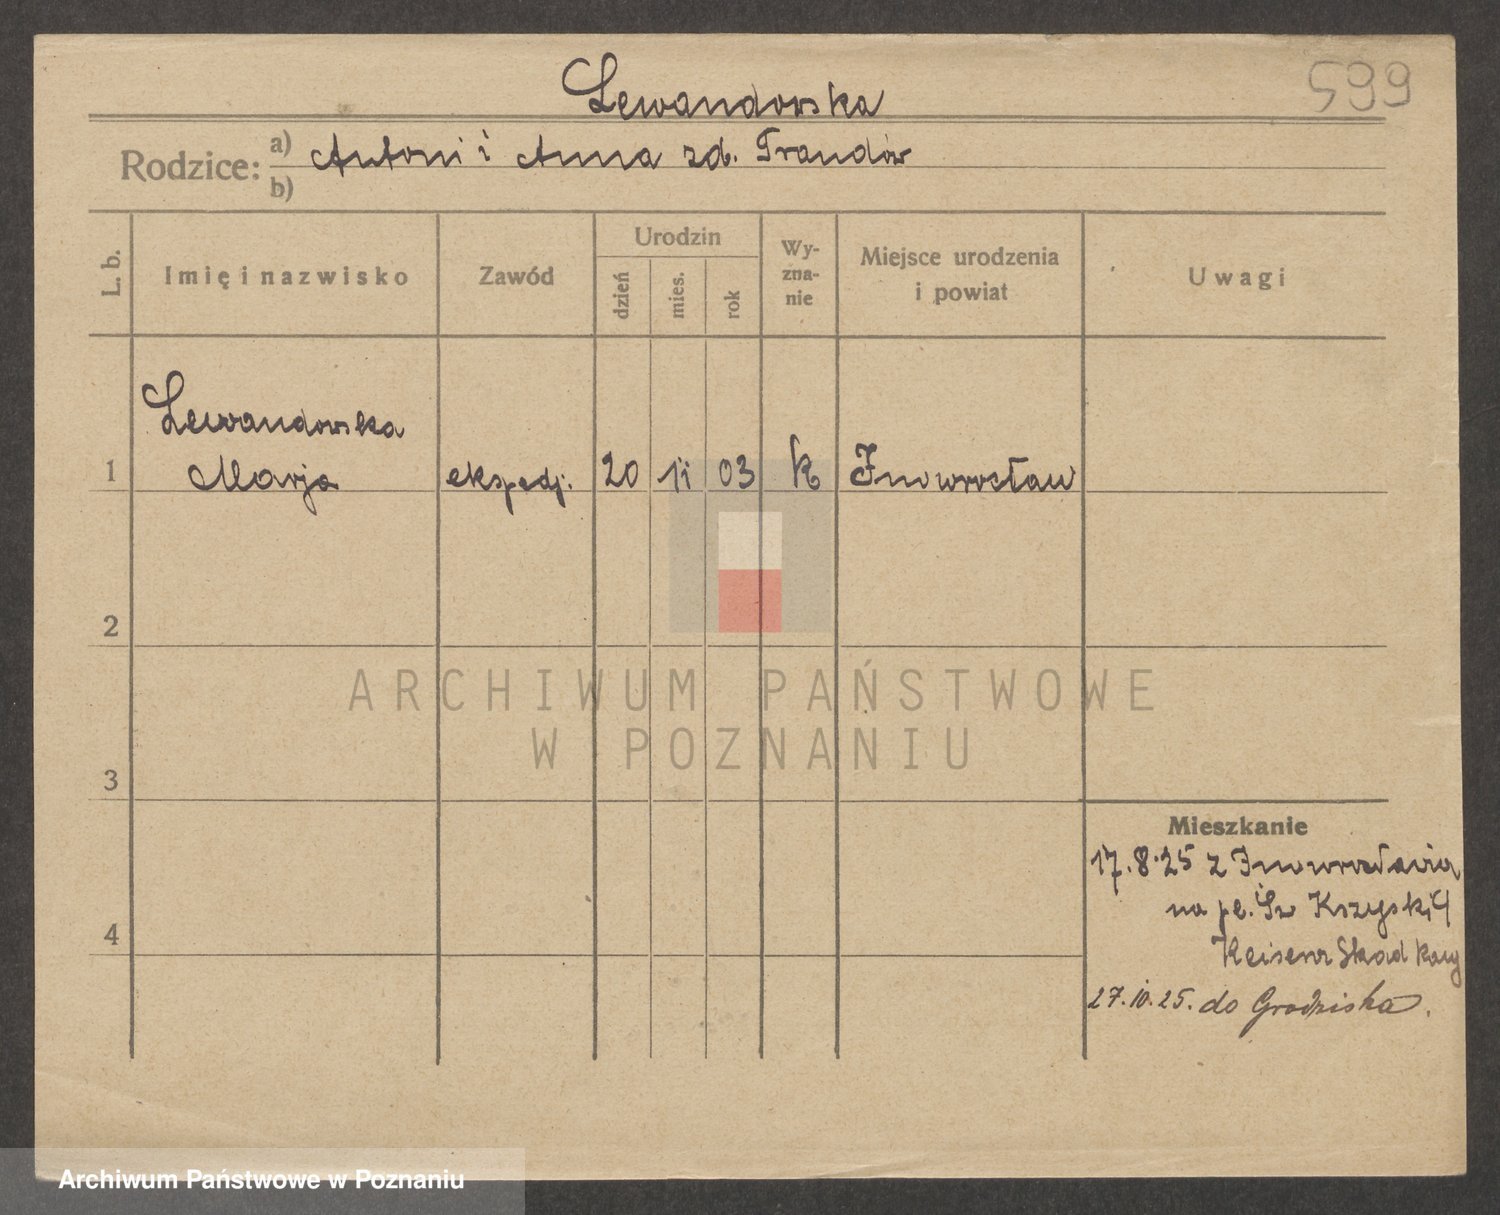 599
Lewandowska
Rodzice: a) Antoni i Anna zd. Trandów
b)
L. b. Imię i nazwisko Zawód Urodzin dzień mies. rok Wy-zna-nie Miejsce urodzenia i powiat Uwagi
Lewandowska
1 Marja ekspedj. 20 11 03 k Inowrocław
2
ARCHIWUM PAŃSTWOWE
W POZNANIU
3
Mieszkanie
17.8.25 z Inowrocławia
na pl. Św
4
27.10.25. do Grodziska.
Archiwum Państwowe w Poznaniu